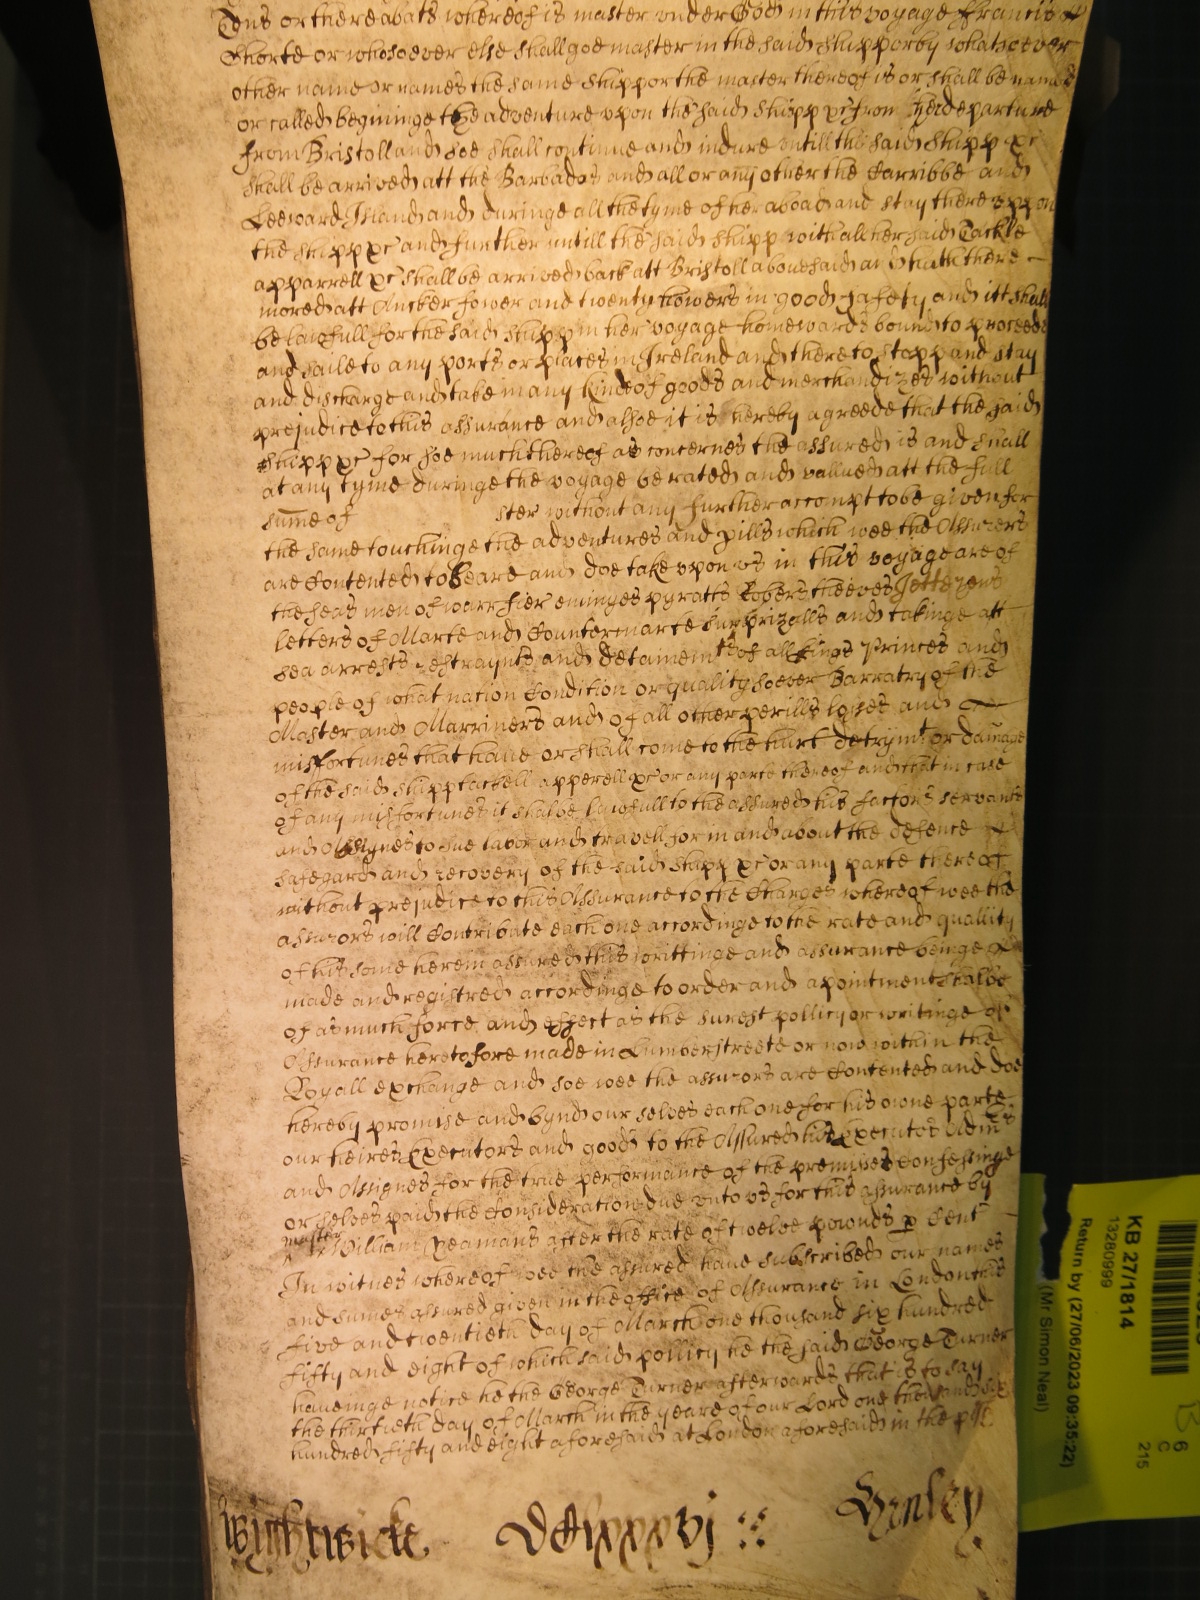 Tons or thereabats whereof is master vnder God in this voyage Francis
Shorte or whosoever else shall goe master in the said shipp or by whatsoever
other name or names the same shipp or the master thereof is or shall be named
or called beginninge the adventure vpon the said shipp &c from her departure
from Bristoll and soe shall continue and indure vntill the said shipp &c
shall be arrived att the Barbados and all or any other the Carribbe and
Leeward Island and duringe all the tyme of her aboad and stay there vppon
the shipp &c and further untill the said shipp with all her said Tackle
apparrell &c shall be arrived back att Bristoll abouesaid and hath there
mored att Ancker fower and twenty howers in good safety and itt shall
be lawfull for the said shipp in her voyage homewards bound to proceede
and saile to any ports or places in Ireland and there to stopp and stay
and discharge and take in any kinde of goods and merchandizes without
prejudice to this assurance and alsoe it is hereby agreede that the said
shipp &c for soe much thereof as concernes the assured is and shall
at any tyme duringe the voyage be rated and vallued att the full
sume of ster without any further accompt to be given for
the same touchinge the adventures and perills which wee the Assurers
are Contented to beare and doe take vpon vs in this voyage are of
the seas men of warr fier enimyes pyratts Robers theeves Jettezons
letters of Marte and Countermarte surprizalls and takinge att
sea arrests restraynts and detainemts of all Kings Princes and
people of what nation Condition or quality soever Barratry of the
Master and Marriners and of all other perills losses and
misfortunes that haue or shall come to the hurt detrymt or damage
of the said shipp tackell apperell &c or any parte thereof and that in case
of any misfortunes it shalbe lawfull to the assured his factors servants
and Assignes to sue labor and travell for in and about the defence
safegard and recovery of the said shipp &c or any parte thereof
without prejudice to this Assurance to the Charges whereof wee the
assurors will Contribute each one accordinge to the rate and quallity
of his some herein assured this writtinge and assurance beinge
made and registred accordinge to order and apointment shalbe
of as much force and effect as the surest pollicy or writinge of
Assurance heretofore made in Lumberstreete or now within the
Royall exchange and soe wee the assurors are Contented and doe
hereby promise and bynd our selves each one for his owne parte
our heires Executors and goods to the Assured his Executors Admrs
and Assignes for the true performance of the premises Confessinge
or selves paid the Consideration due vnto vs for this assurance by
master
Mr William Yeamans after the rate of twelve pownds p Cent
In witnes whereof wee the assured haue subscribed our names
and sumes assured given in the office of Assurance in London this
five and twentieth day of March one thousand six hundred
fifty and eight of which said pollicy he the said George Turner
haueinge notice he the George Turner afterwards that is to say
the thirtieth day of March in the yeare of our Lord one thousand six
hundred fifty and eight aforesaid at London aforesaid in the
Wightwicke Henley
KB 27/1814
13280999
Return by (27/06/2023 09:35:22)
(Mr Simon Neal)
B
6
C
215